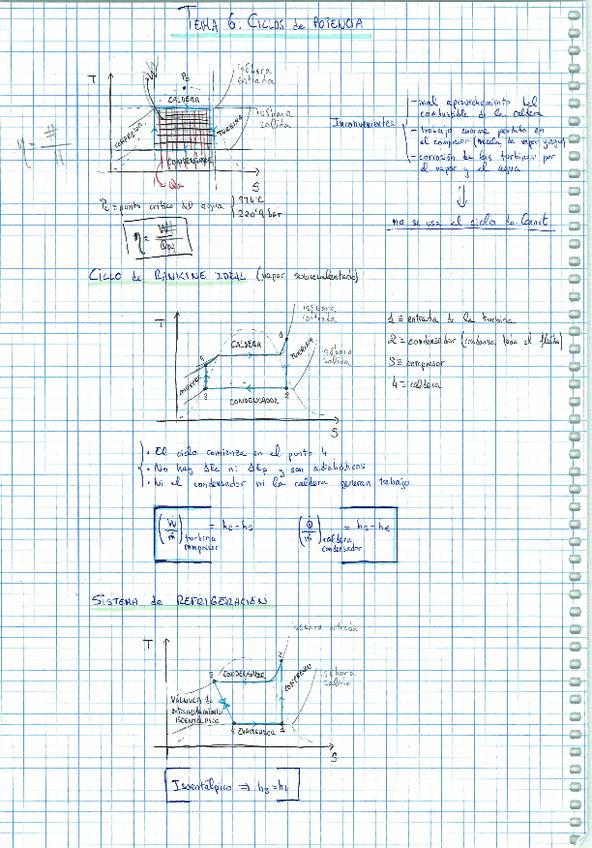 TEMA 6. CICLOS de POTENCIA
T
Pc
isóbara
entrada
CALDERA
isóbara
salida
COMPRESOR
TURBINA
CONDENSADOR
S
η = #/π
Inconvenientes
- mal aprovechamiento del
combustible de la caldera
- trabajo enorme perdido en
el compresor (mezcla de vapor y agua)
- corrosión de las turbinas por
el vapor y el agua
no se usa el ciclo de Carnot
Pc = punto crítico del agua
374°C
η = W/
CICLO de RANKINE IDEAL (vapor sobrecalentado)
T
isóbara
entrada
CALDERA
TURBINA
isóbara
salida
4
3
2
CONDENSADOR
S
1 ≡ entrada de la turbina
2 ≡ condensador (condensa todo el fluido)
3 ≡ compresor
4 ≡ caldera
· El ciclo comienza en el punto 4
· No hay ΔEc ni ΔEp y son adiabáticos
· Ni el condensador ni la caldera generan trabajo
(Ẇ/ṁ) turbina compresor = he - hs
(Q̇/ṁ) caldera condensador = hs - he
SISTEMA de REFRIGERACIÓN
T
isóbara
CONDENSADOR
isóbara
salida
COMPRESOR
3
VÁLVULA de
ESTRANGULAMIENTO
ISOENTÁLPICO
4
1
S
Isoentálpico ⇒ h3 = h4